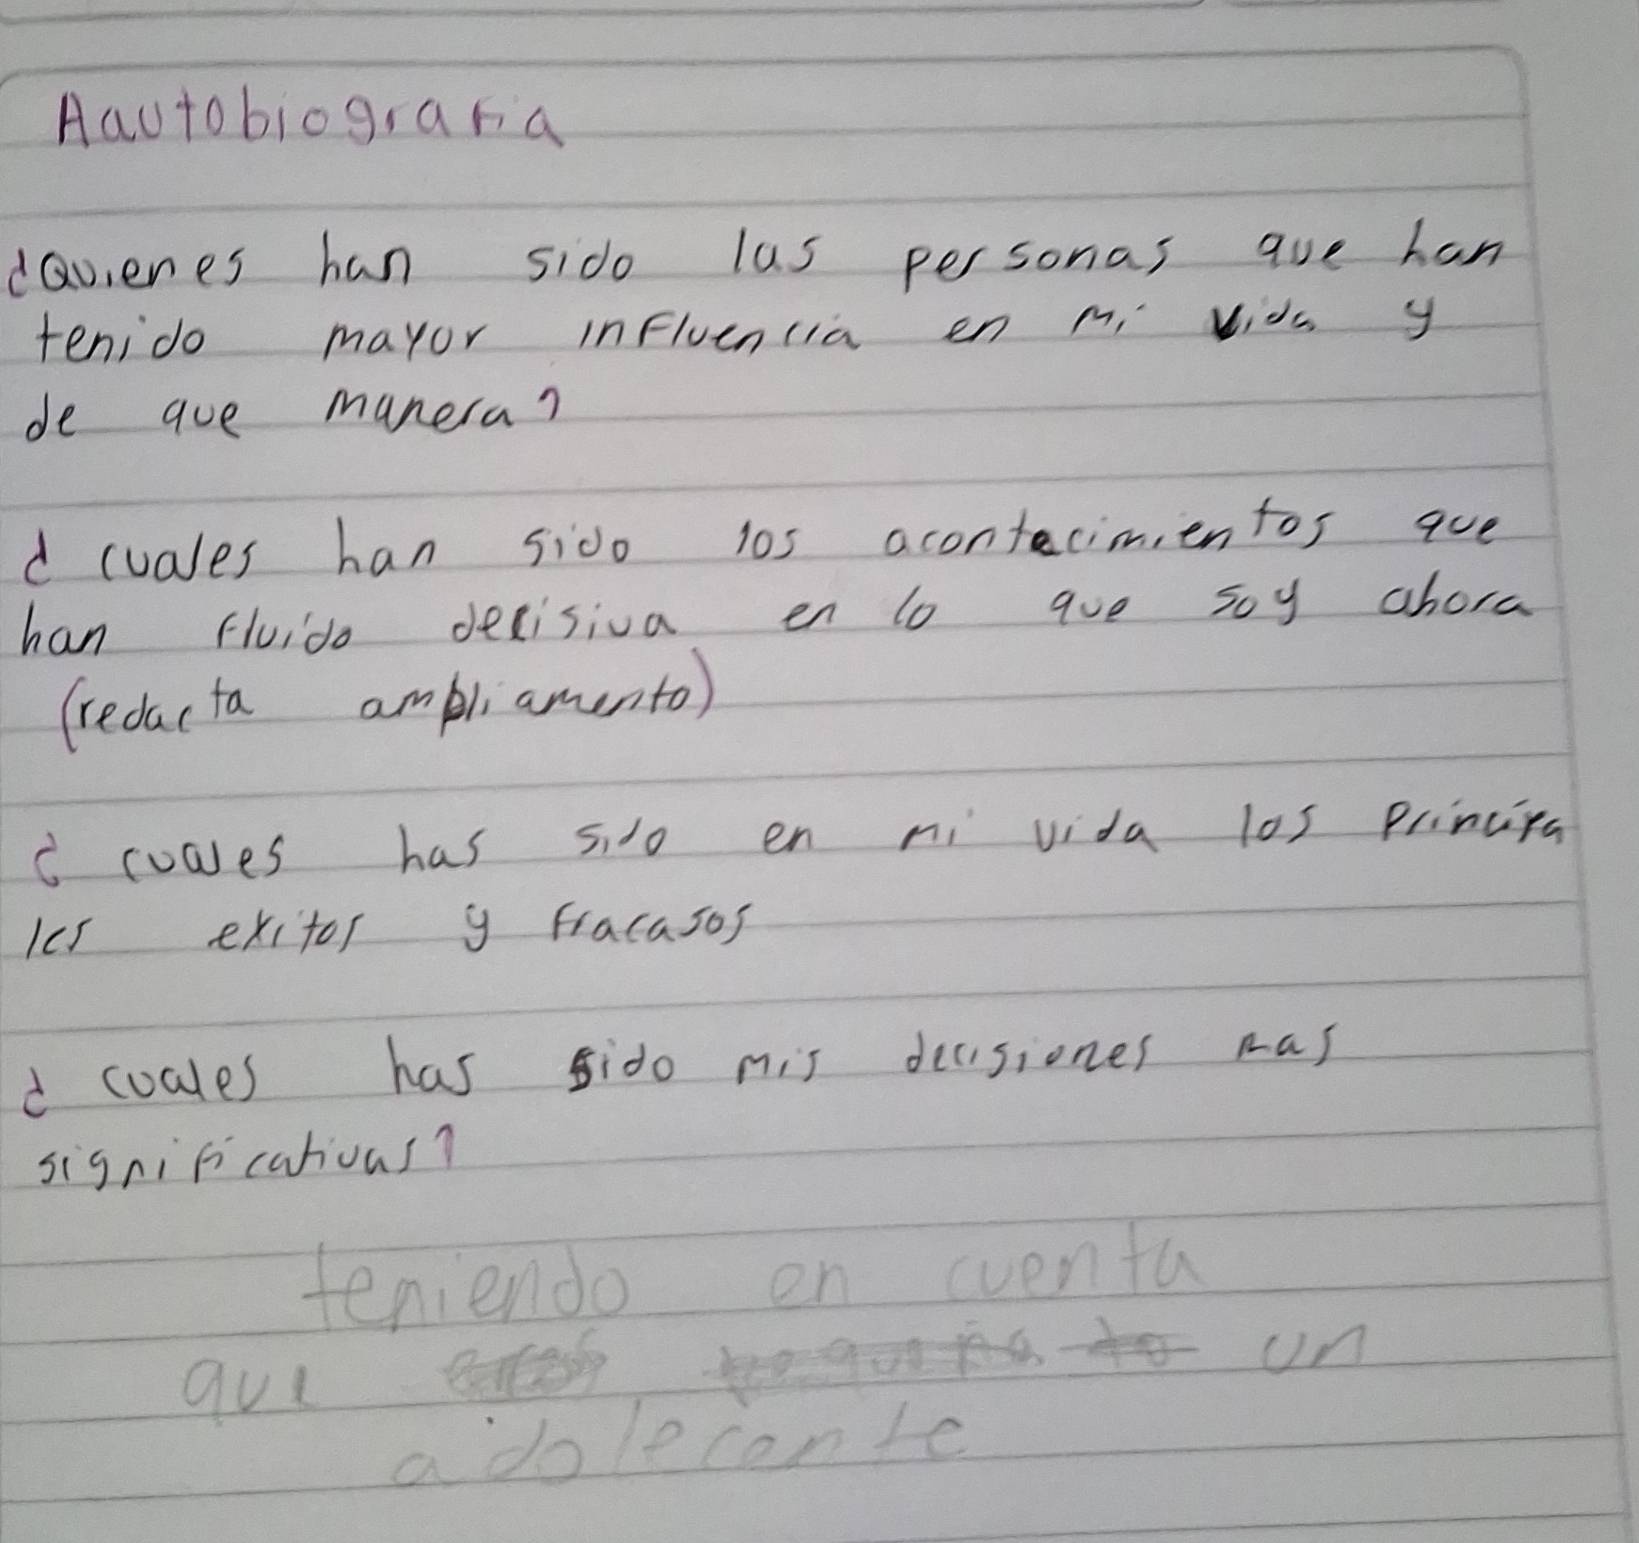 Aautobiografia
¿Quienes han sido las personas que han
tenido mayor influencia en mi vida y
de que manera?
¿ cuales han sido los acontecimientos que
han fluido decisiva en lo que soy ahora
(redacta ampliamento)
¿ cuales has sido en mi vida los Principa
les exitos y fracasos
¿ cuales has sido mis decisiones mas
significativas?
teniendo en cuenta
que un
adolecente